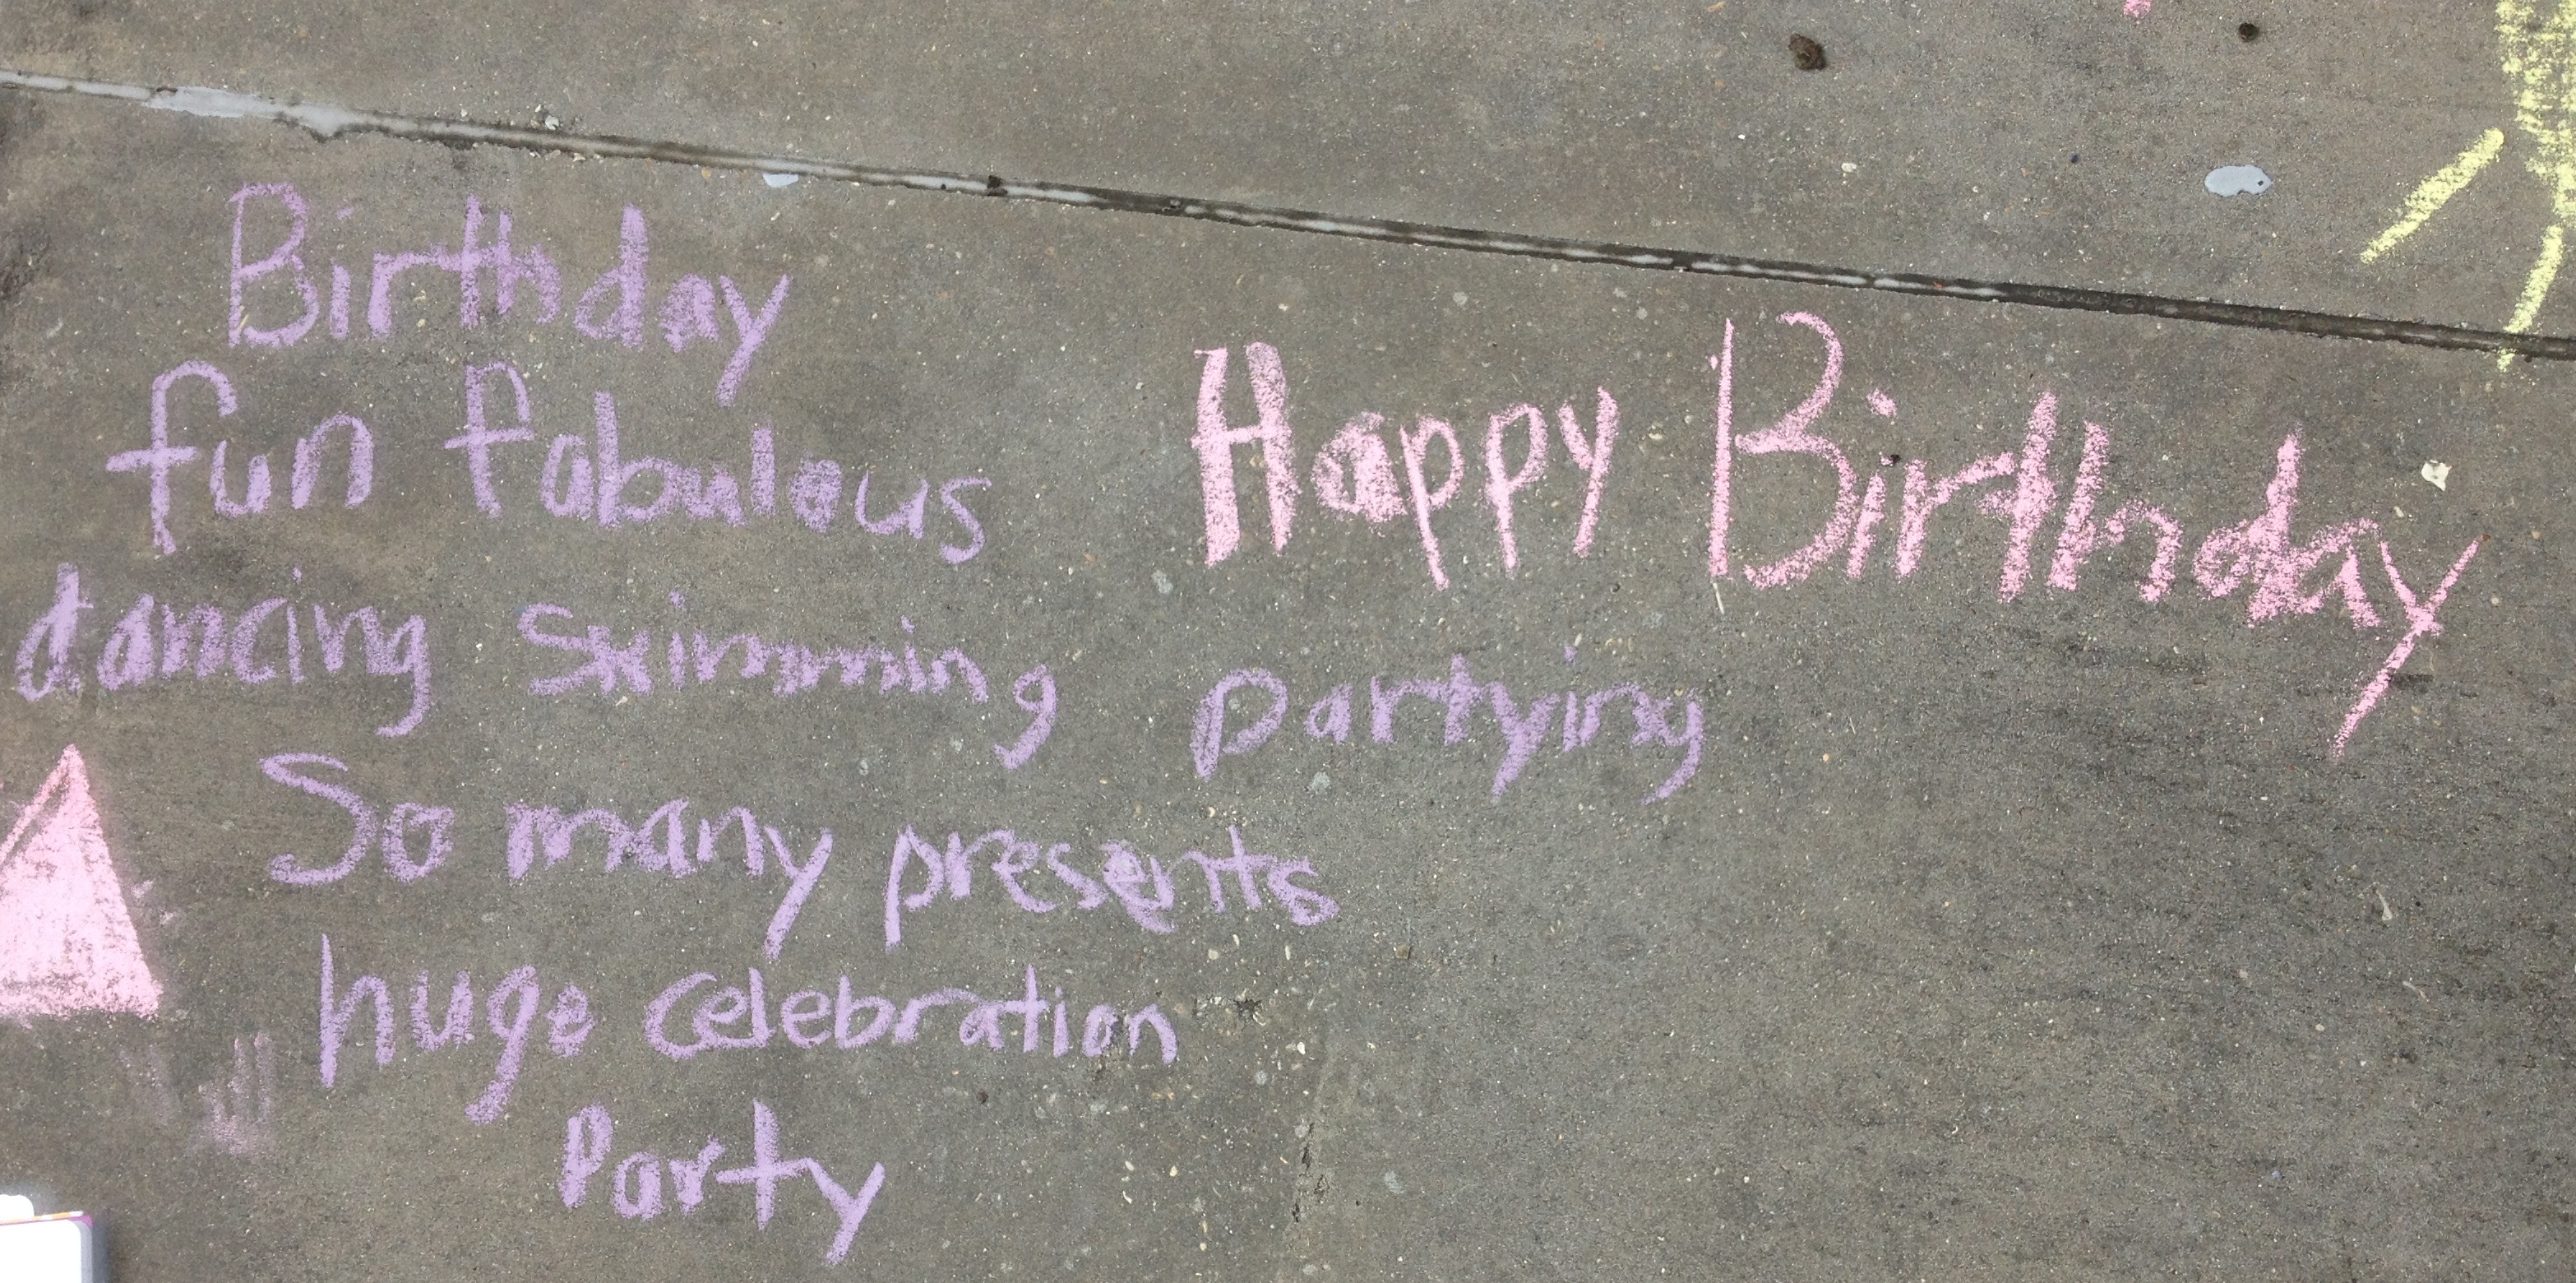 Birthday
fun fabulous
dancing swimming partying
So many presents
huge celebration
Party
Happy Birthday